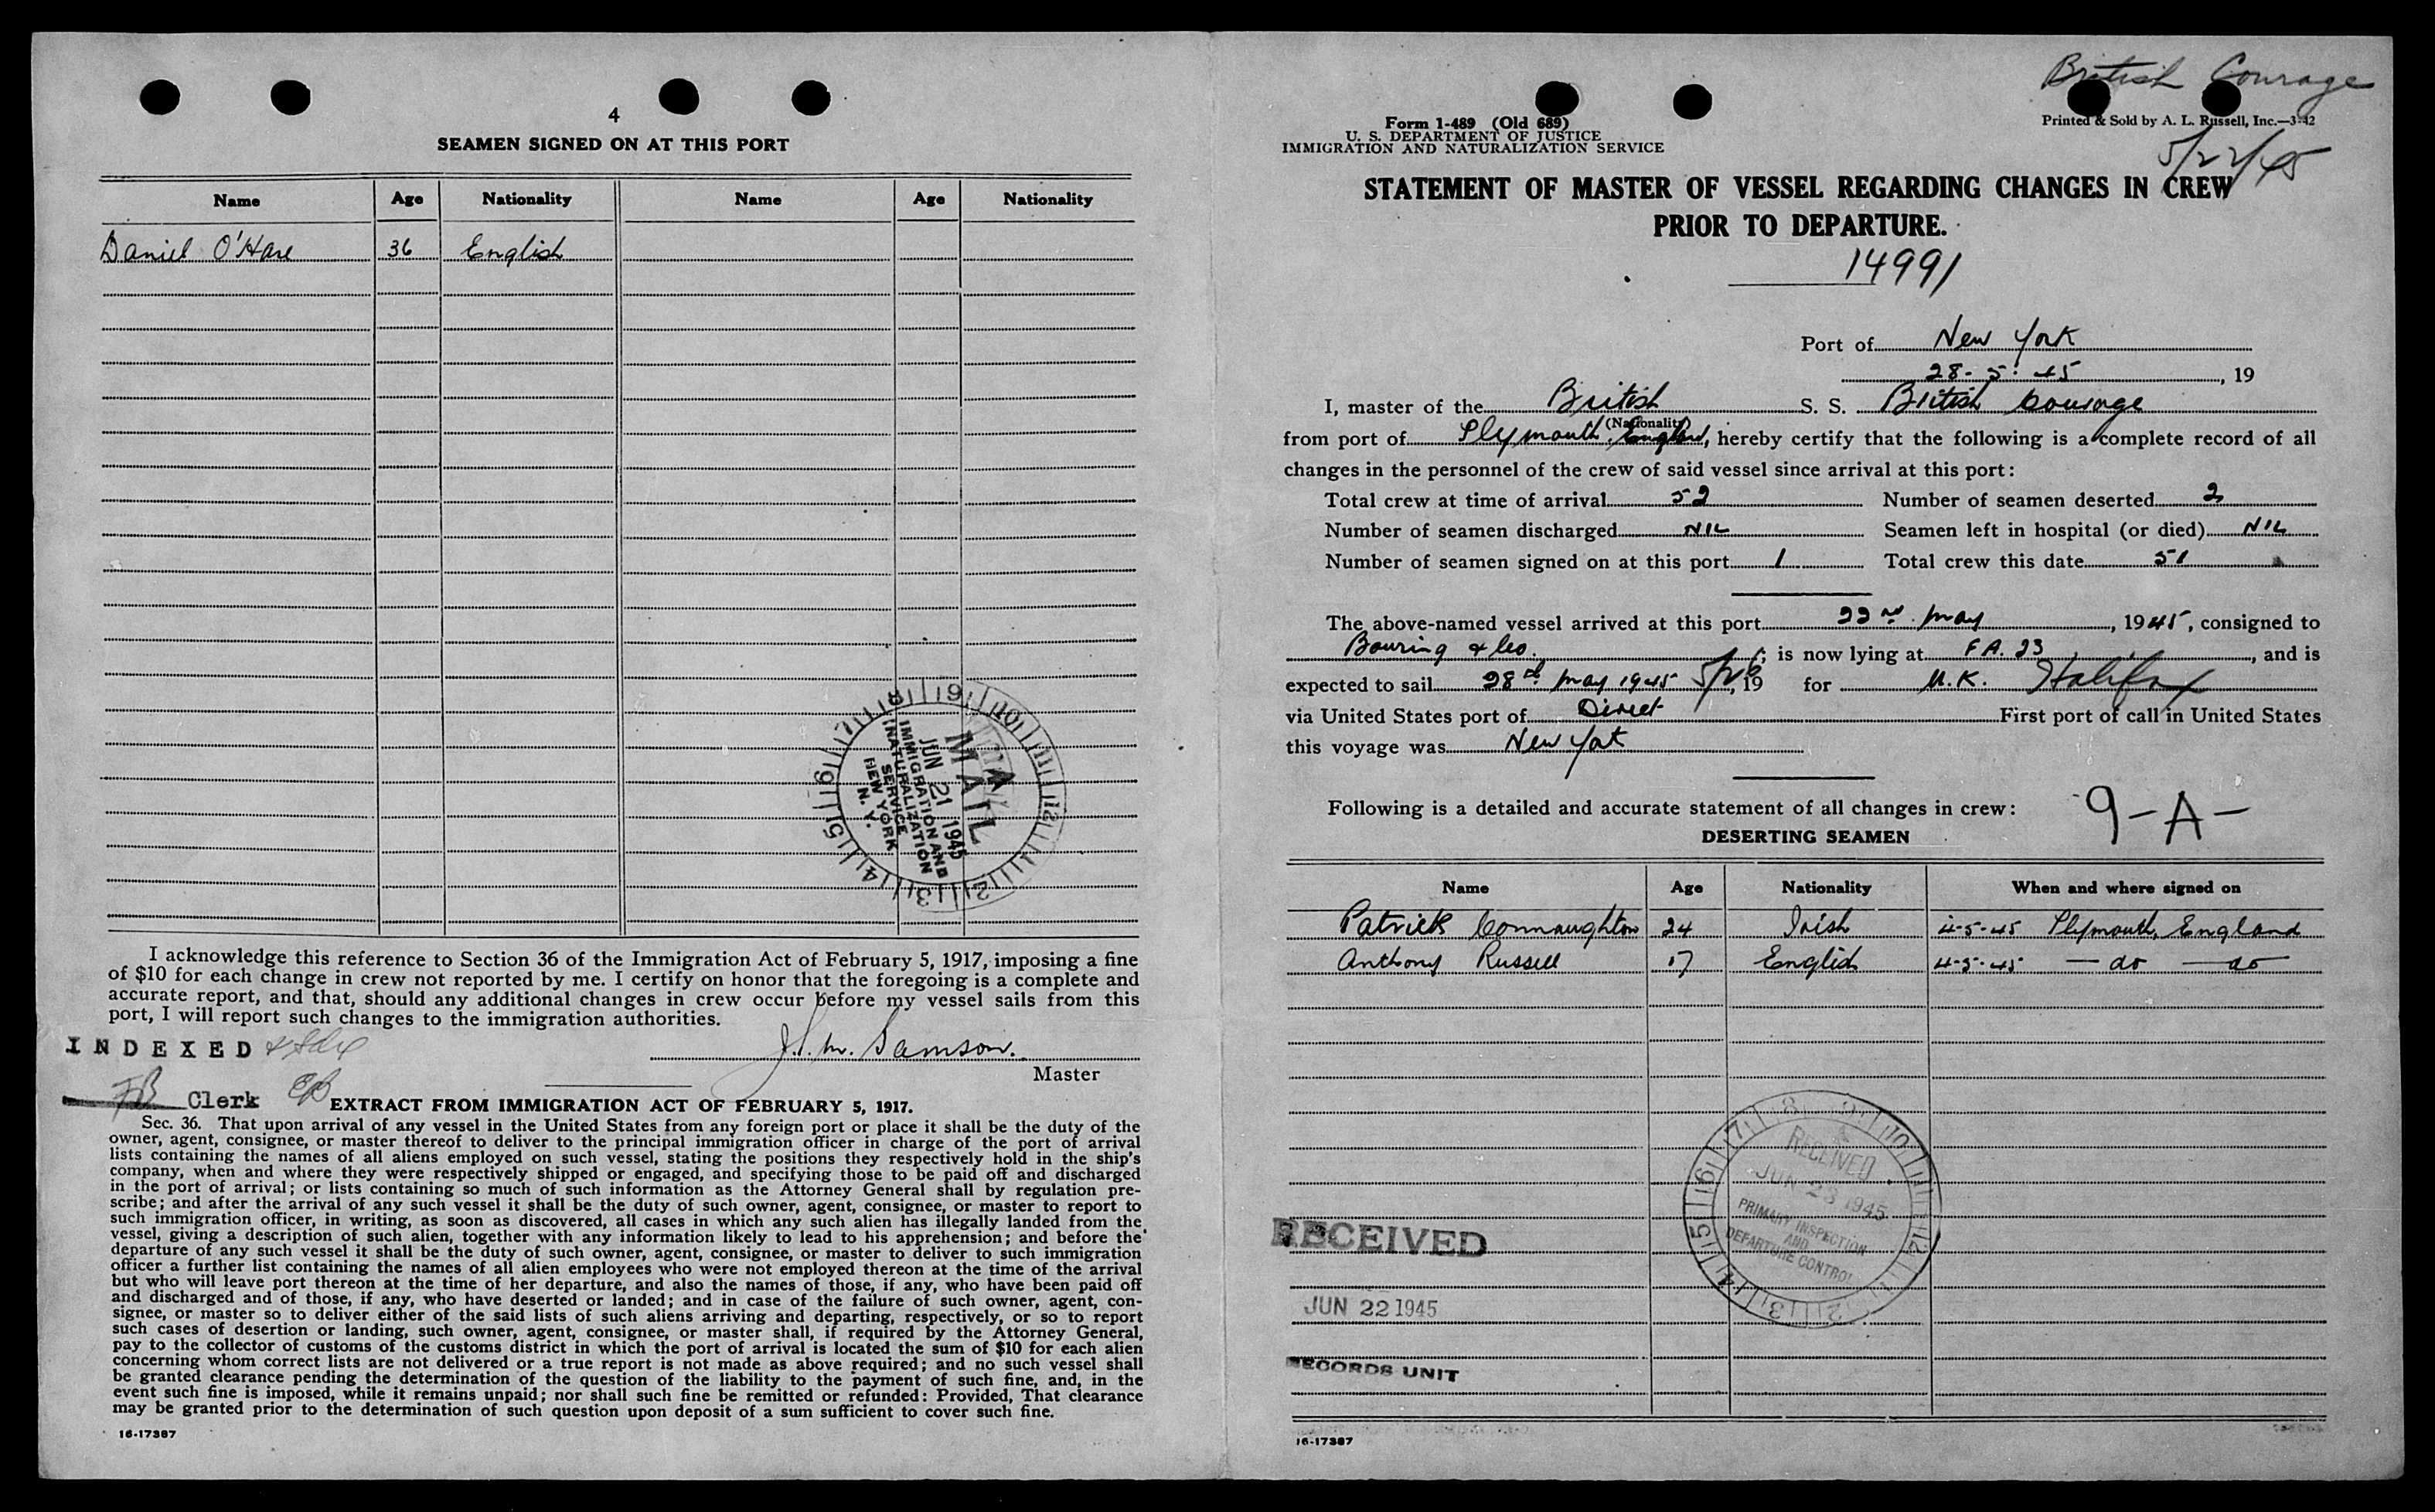 4
SEAMEN SIGNED ON AT THIS PORT
Name Age Nationality Name Age Nationality
Daniel O'Hare 36 English
MAIL
JUN 21 1945
IMMIGRATION AND
NATURALIZATION
SERVICE
NEW YORK
N. Y.
I acknowledge this reference to Section 36 of the Immigration Act of February 5, 1917, imposing a fine
of $10 for each change in crew not reported by me. I certify on honor that the foregoing is a complete and
accurate report, and that, should any additional changes in crew occur before my vessel sails from this
port, I will report such changes to the immigration authorities.
INDEXED
J. S. M. Samson.
Master
FB Clerk EB
EXTRACT FROM IMMIGRATION ACT OF FEBRUARY 5, 1917.
Sec. 36. That upon arrival of any vessel in the United States from any foreign port or place it shall be the duty of the
owner, agent, consignee, or master thereof to deliver to the principal immigration officer in charge of the port of arrival
lists containing the names of all aliens employed on such vessel, stating the positions they respectively hold in the ship's
company, when and where they were respectively shipped or engaged, and specifying those to be paid off and discharged
in the port of arrival; or lists containing so much of such information as the Attorney General shall by regulation pre-
scribe; and after the arrival of any such vessel it shall be the duty of such owner, agent, consignee, or master to report to
such immigration officer, in writing, as soon as discovered, all cases in which any such alien has illegally landed from the
vessel, giving a description of such alien, together with any information likely to lead to his apprehension; and before the
departure of any such vessel it shall be the duty of such owner, agent, consignee, or master to deliver to such immigration
officer a further list containing the names of all alien employees who were not employed thereon at the time of the arrival
but who will leave port thereon at the time of her departure, and also the names of those, if any, who have been paid off
and discharged and of those, if any, who have deserted or landed; and in case of the failure of such owner, agent, con-
signee, or master so to deliver either of the said lists of such aliens arriving and departing, respectively, or so to report
such cases of desertion or landing, such owner, agent, consignee, or master shall, if required by the Attorney General,
pay to the collector of customs of the customs district in which the port of arrival is located the sum of $10 for each alien
concerning whom correct lists are not delivered or a true report is not made as above required; and no such vessel shall
be granted clearance pending the determination of the question of the liability to the payment of such fine, and, in the
event such fine is imposed, while it remains unpaid; nor shall such fine be remitted or refunded: Provided, That clearance
may be granted prior to the determination of such question upon deposit of a sum sufficient to cover such fine.
16-17387
British Courage
Form 1-489 (Old 689)
U. S. DEPARTMENT OF JUSTICE
IMMIGRATION AND NATURALIZATION SERVICE
Printed & Sold by A. L. Russell, Inc.—3-42
5/22/45
STATEMENT OF MASTER OF VESSEL REGARDING CHANGES IN CREW
PRIOR TO DEPARTURE.
14991
Port of New York
28-5-45, 19
I, master of the British S. S. British Courage
(Nationality)
from port of Plymouth, England, hereby certify that the following is a complete record of all
changes in the personnel of the crew of said vessel since arrival at this port:
Total crew at time of arrival 52 Number of seamen deserted 2
Number of seamen discharged NIL Seamen left in hospital (or died) NIL
Number of seamen signed on at this port 1 Total crew this date 51
The above-named vessel arrived at this port 22nd May, 1945, consigned to
Bowring & Co. ; is now lying at F.A. 23, and is
expected to sail 28th May 1945, 19 for U.K. Halifax
via United States port of Direct First port of call in United States
this voyage was New York
Following is a detailed and accurate statement of all changes in crew: 9-A-
DESERTING SEAMEN
Name Age Nationality When and where signed on
Patrick Connaughton 24 Irish 4-5-45 Plymouth, England
Anthony Russell 17 English 4-5-45 — do — do
RECEIVED
JUN 23 1945
PRIMARY INSPECTION
AND
DEPARTURE CONTROL
RECEIVED
JUN 22 1945
RECORDS UNIT
16-17387